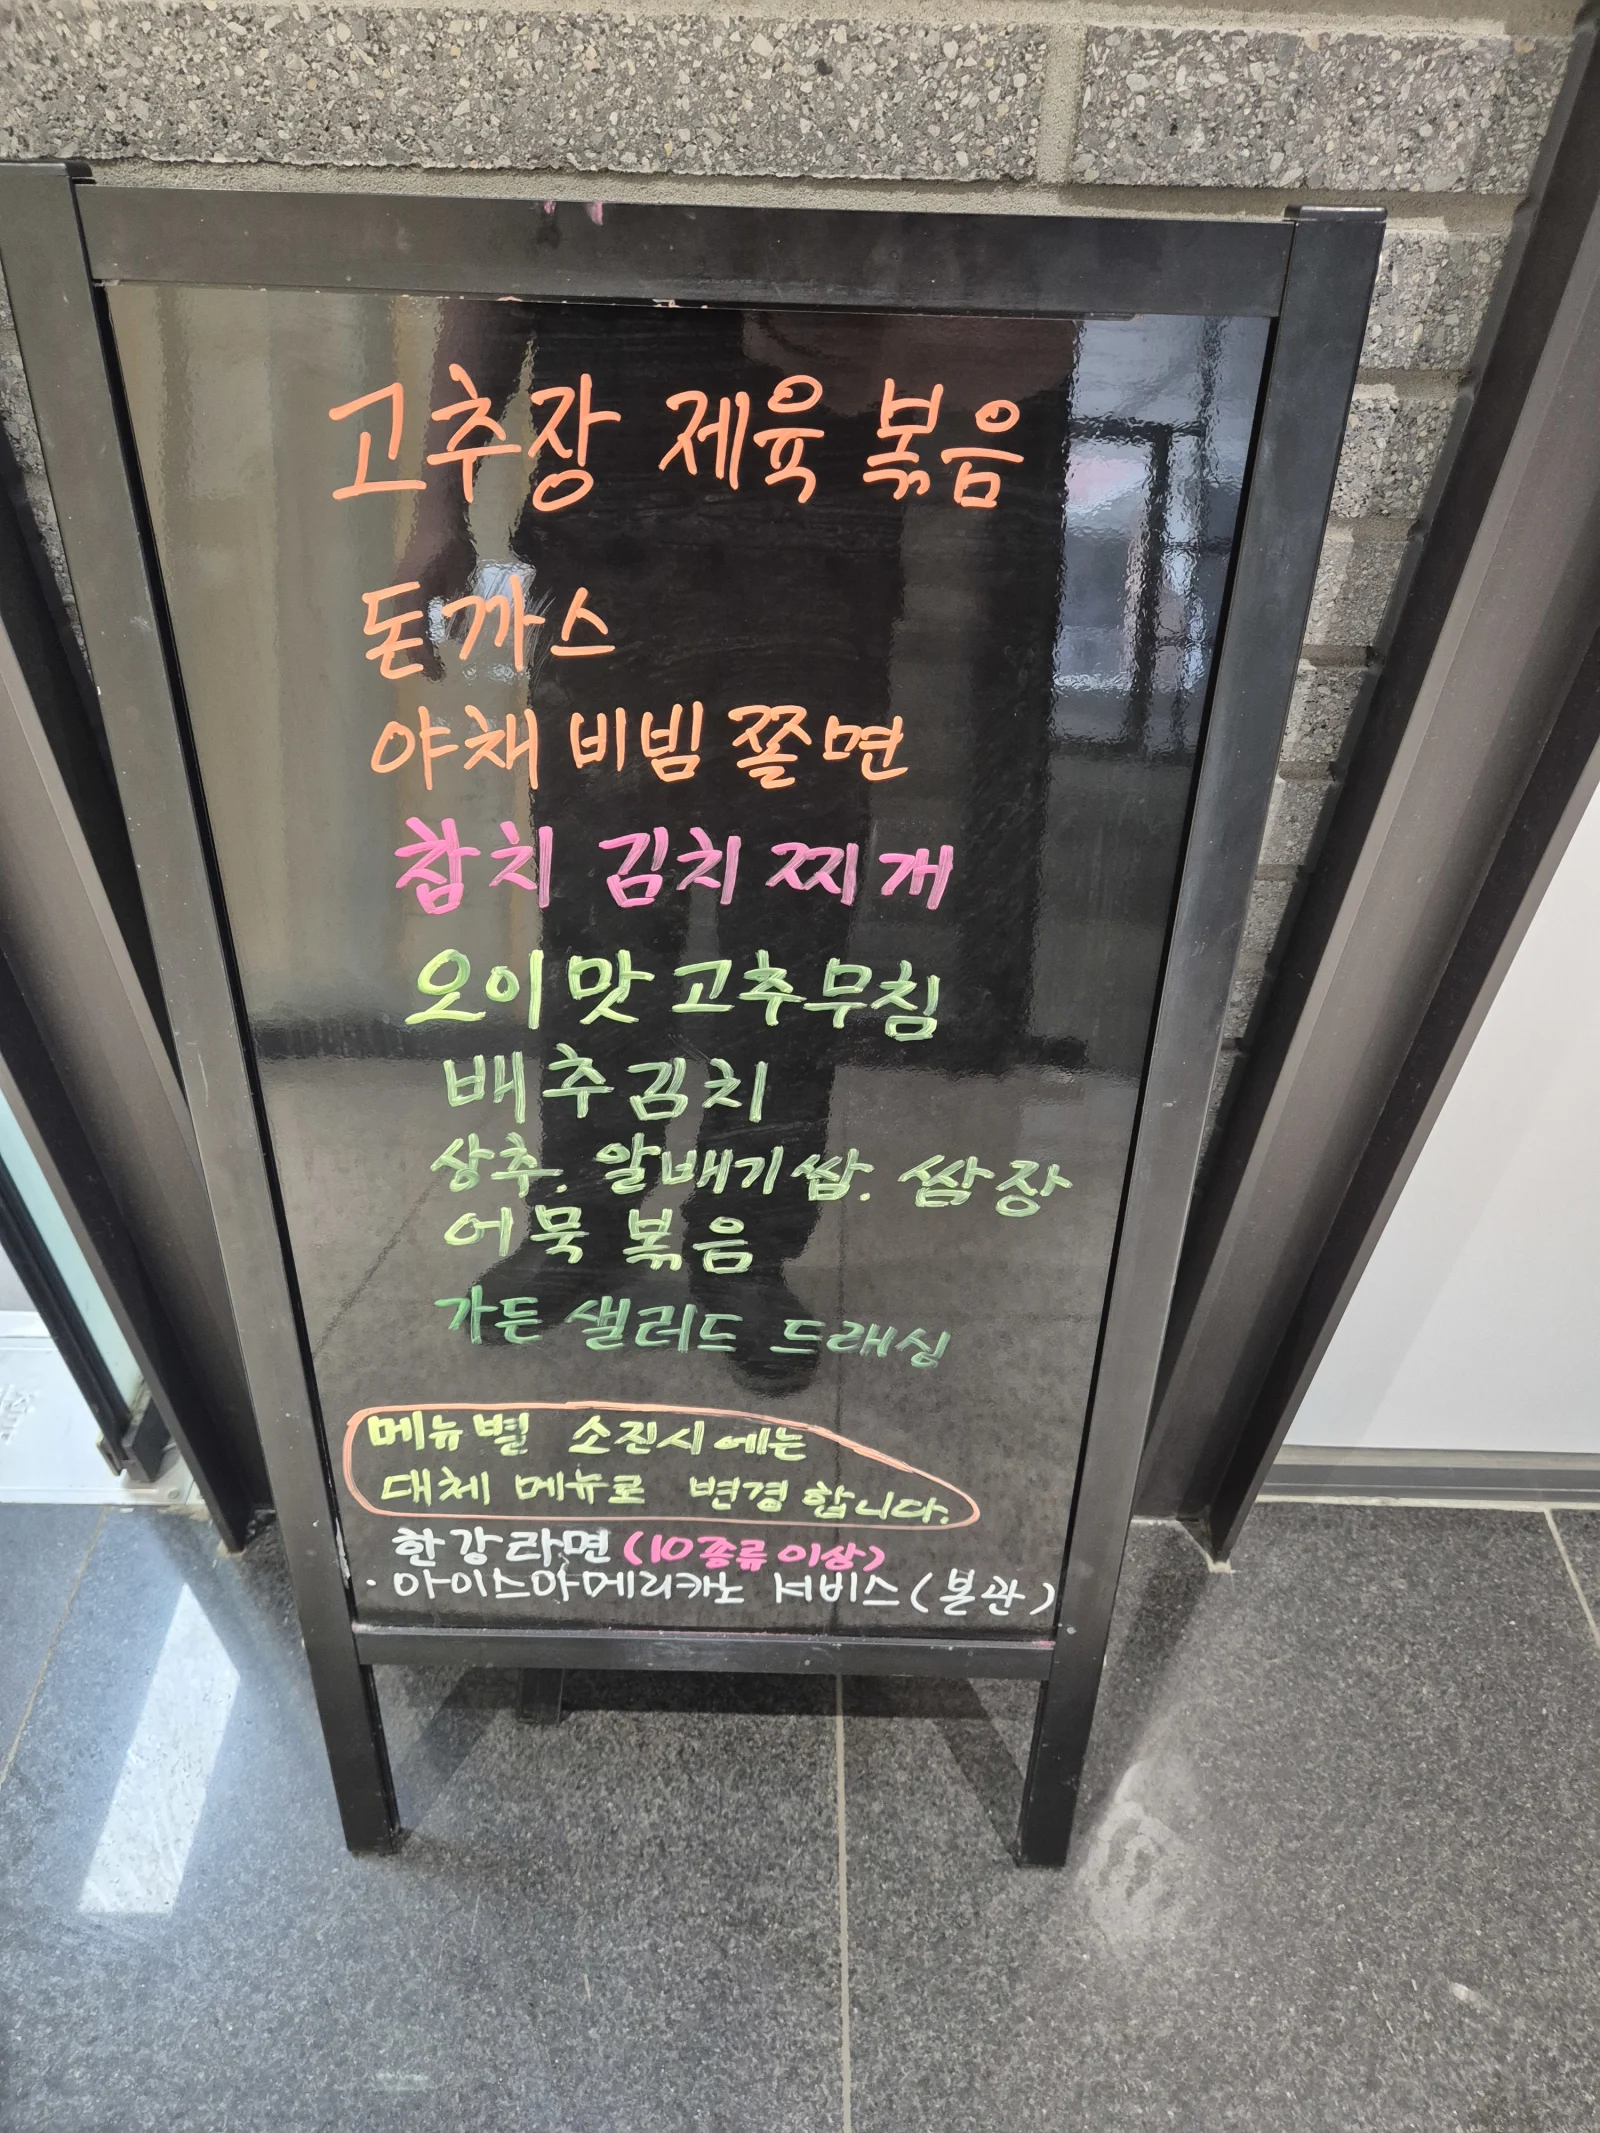 고추장 제육 볶음
돈까스
야채 비빔 쫄면
참치 김치 찌개
오이맛 고추무침
배추김치
상추. 알배기 쌈. 쌈장
어묵 볶음
가든 샐러드 드래싱
메뉴별 소진시에는
대체 메뉴로 변경합니다.
한강라면 (10종류 이상)
· 아이스아메리카노 서비스 (본관)